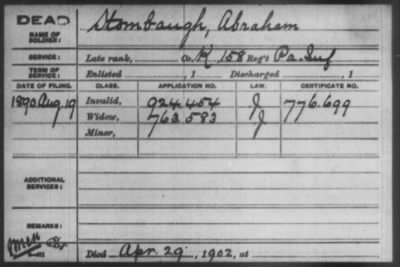 DEAD
NAME OF SOLDIER: Stombaugh, Abraham
SERVICE: Late rank, Co. K 158 Reg't Pa. Inf
TERM OF SERVICE: Enlisted , 1 Discharged , 1
DATE OF FILING. CLASS. APPLICATION NO. LAW. CERTIFICATE NO.
1890 Aug. 19 Invalid, 924.454 J 776.699
Widow, 763.583 J
Minor,
ADDITIONAL SERVICES:
REMARKS:
Died Apr. 29, 1902, at